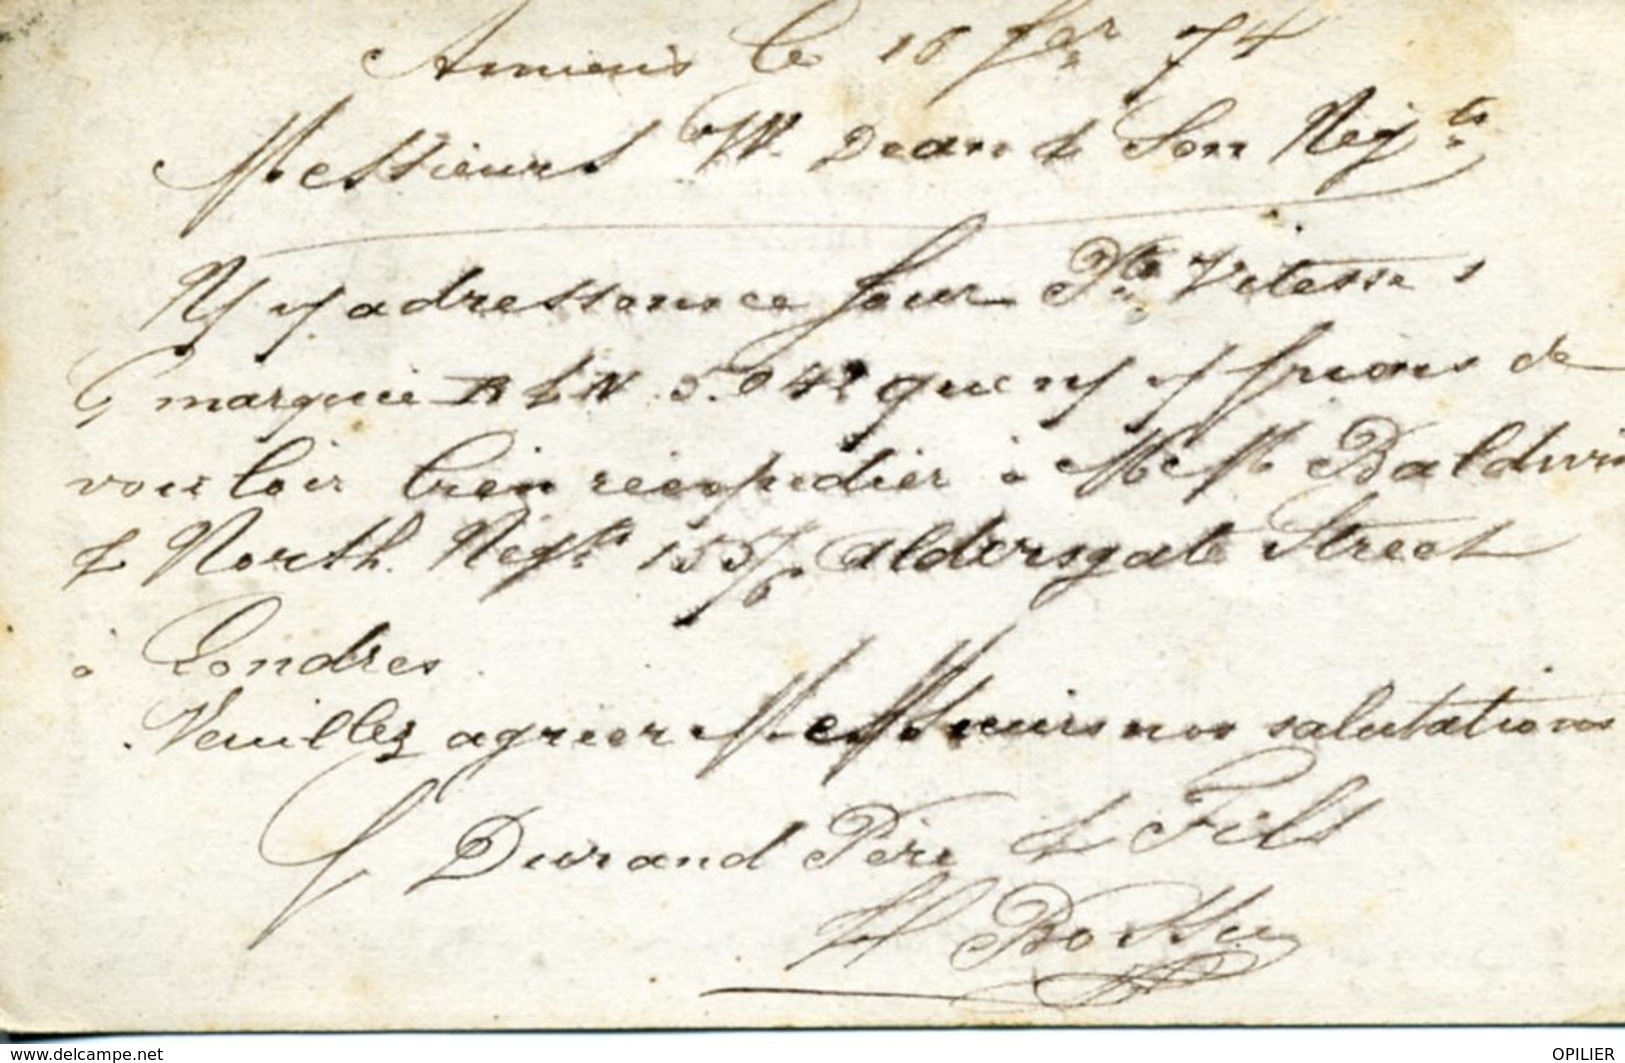 Amiens le 16 fer 74
Messieurs W. Dean & Son Négts
N v adressons ce jour Pte Vitesse 1
marquée N 5.042 que n v prions de
vouloir bien réexpédier à M M Baldwin
& North. Négts 155/6 Aldersgate Street
à Londres.
Veuillez agréer Messieurs nos salutations
Durand Père & Fils
Bossu
www.delcampe.net
OPILIER